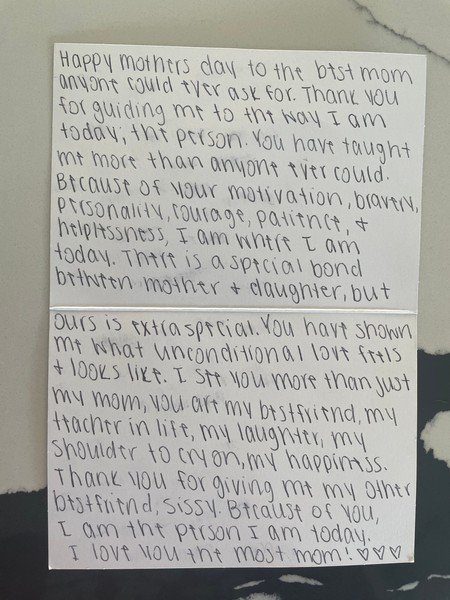 Happy mothers day to the best mom
anyone could ever ask for. Thank you
for guiding me to the way I am
today, the person. You have taught
me more than anyone ever could.
Because of your motivation, bravery,
personality, courage, patience, &
helplessness, I am where I am
today. There is a special bond
between mother & daughter, but
ours is extra special. You have shown
me what unconditional love feels
& looks like. I see you more than just
my mom, you are my bestfriend, my
teacher in life, my laughter, my
shoulder to cry on, my happiness.
Thank you for giving me my other
bestfriend, sissy. Because of you,
I am the person I am today.
I love you the most mom! ♡♡♡